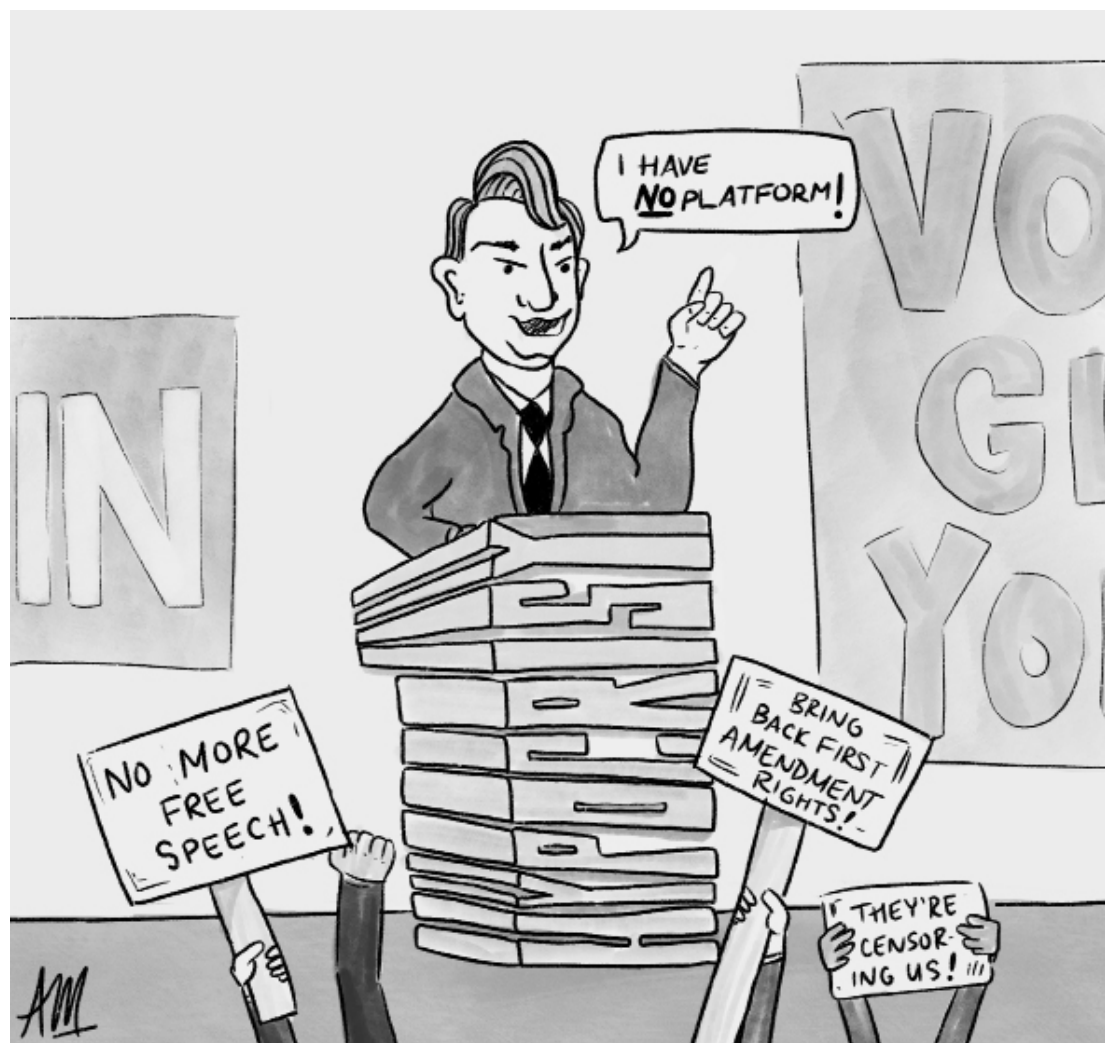 I HAVE
NO PLATFORM!
VO
GI
YO
IN
NO MORE
FREE
SPEECH!
BRING
BACK FIRST
AMENDMENT
RIGHTS!
THEY'RE
CENSOR-
ING US!
AM